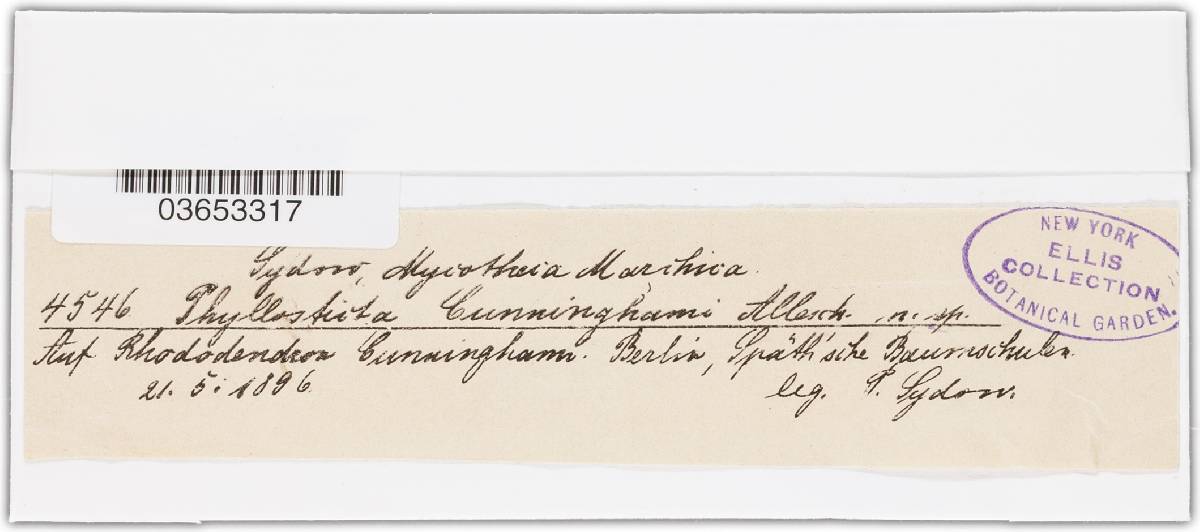 03653317
NEW YORK
ELLIS
COLLECTION
BOTANICAL GARDEN.
Sydow, Mycotheca Marchica.
4546 Phyllosticta Cunninghami Allesch. n. sp.
Auf Rhododendron Cunninghami. Berlin, Späth'sche Baumschulen.
21. 5. 1896. leg. P. Sydow.